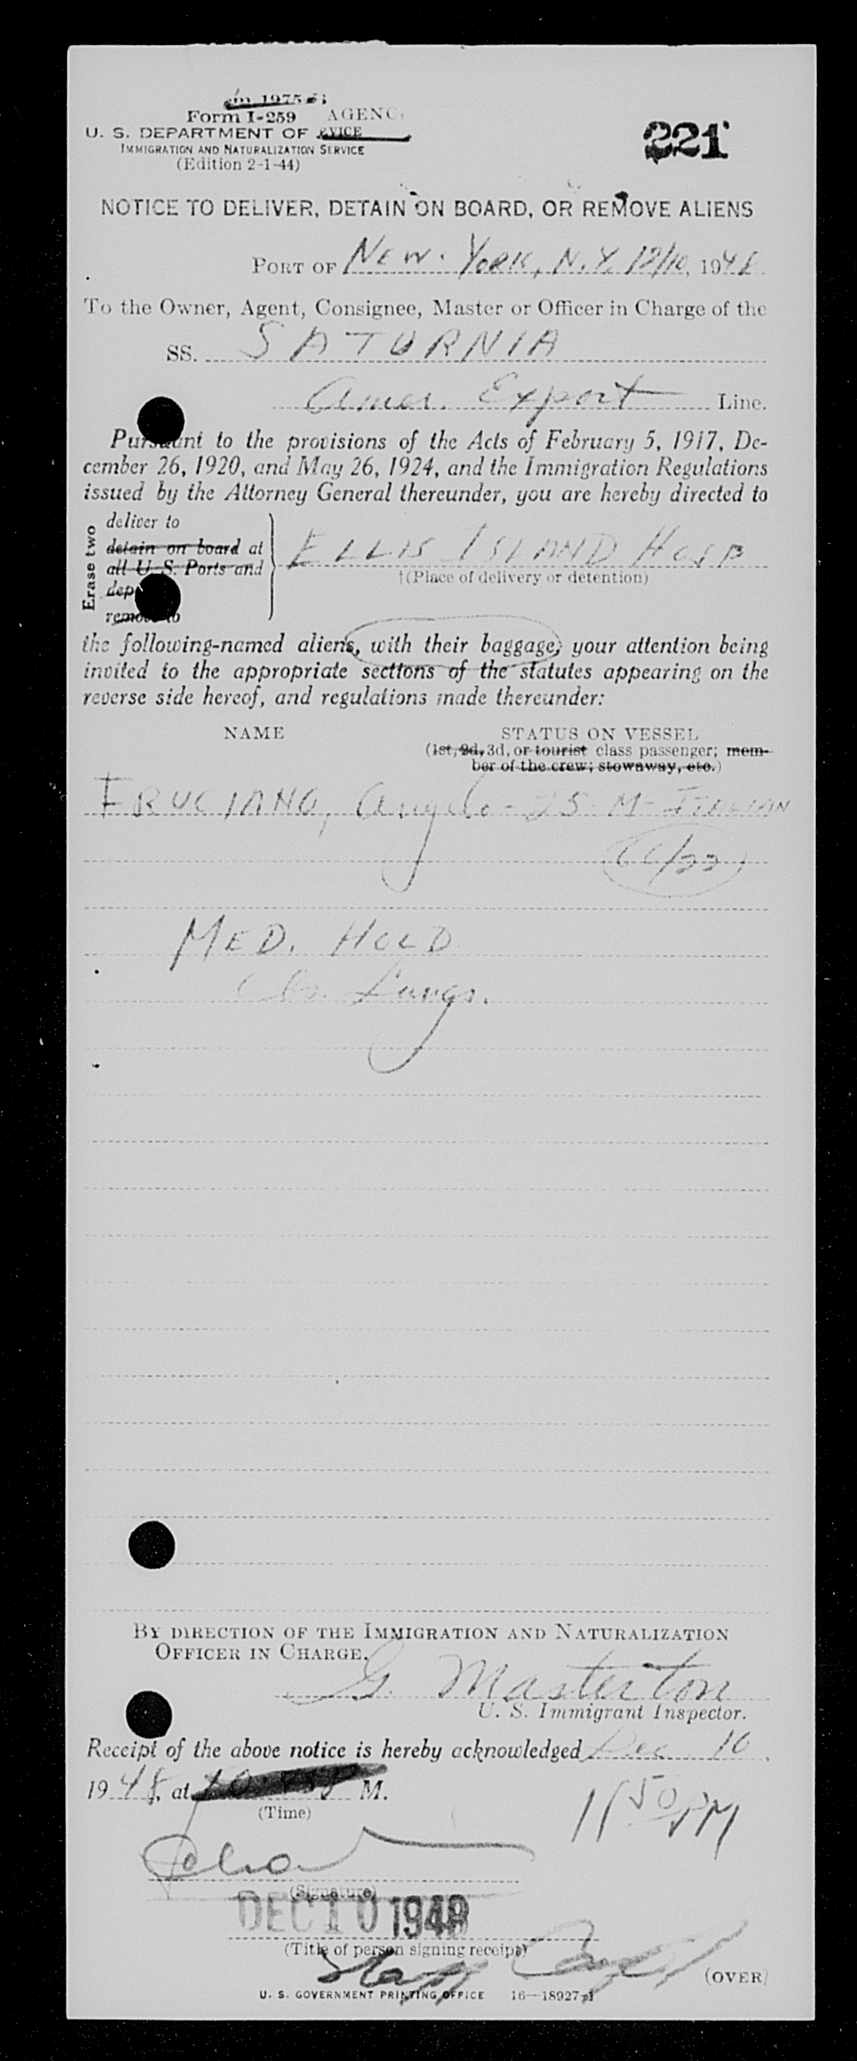 Form I-259 AGENC
U. S. DEPARTMENT OF
IMMIGRATION AND NATURALIZATION SERVICE
(Edition 2-1-44)
221
NOTICE TO DELIVER, DETAIN ON BOARD, OR REMOVE ALIENS
PORT OF NEW. YORK, N.Y. 12/10, 1948
To the Owner, Agent, Consignee, Master or Officer in Charge of the
SS. SATURNIA
Amer. Export Line.
Pursuant to the provisions of the Acts of February 5, 1917, De-
cember 26, 1920, and May 26, 1924, and the Immigration Regulations
issued by the Attorney General thereunder, you are hereby directed to
Erase two
deliver to
detain on board at
all U. S. Ports and
dep
remove to
ELLIS ISLAND HOSP
†(Place of delivery or detention)
the following-named aliens, with their baggage, your attention being
invited to the appropriate sections of the statutes appearing on the
reverse side hereof, and regulations made thereunder:
NAME STATUS ON VESSEL
(1st, 2d, 3d, or tourist class passenger; mem-
ber of the crew; stowaway, etc.)
FRUCIANO, Angelo - 25 - M - ITALIAN
MED. HOLD
Lungs.
BY DIRECTION OF THE IMMIGRATION AND NATURALIZATION
OFFICER IN CHARGE.
G. Masterton
U. S. Immigrant Inspector.
Receipt of the above notice is hereby acknowledged Dec 10,
1948, at M.
(Time)
11 50 PM
(Signature)
DEC 10 1948
(Title of person signing receipt)
(OVER)
U. S. GOVERNMENT PRINTING OFFICE 16—18927-1